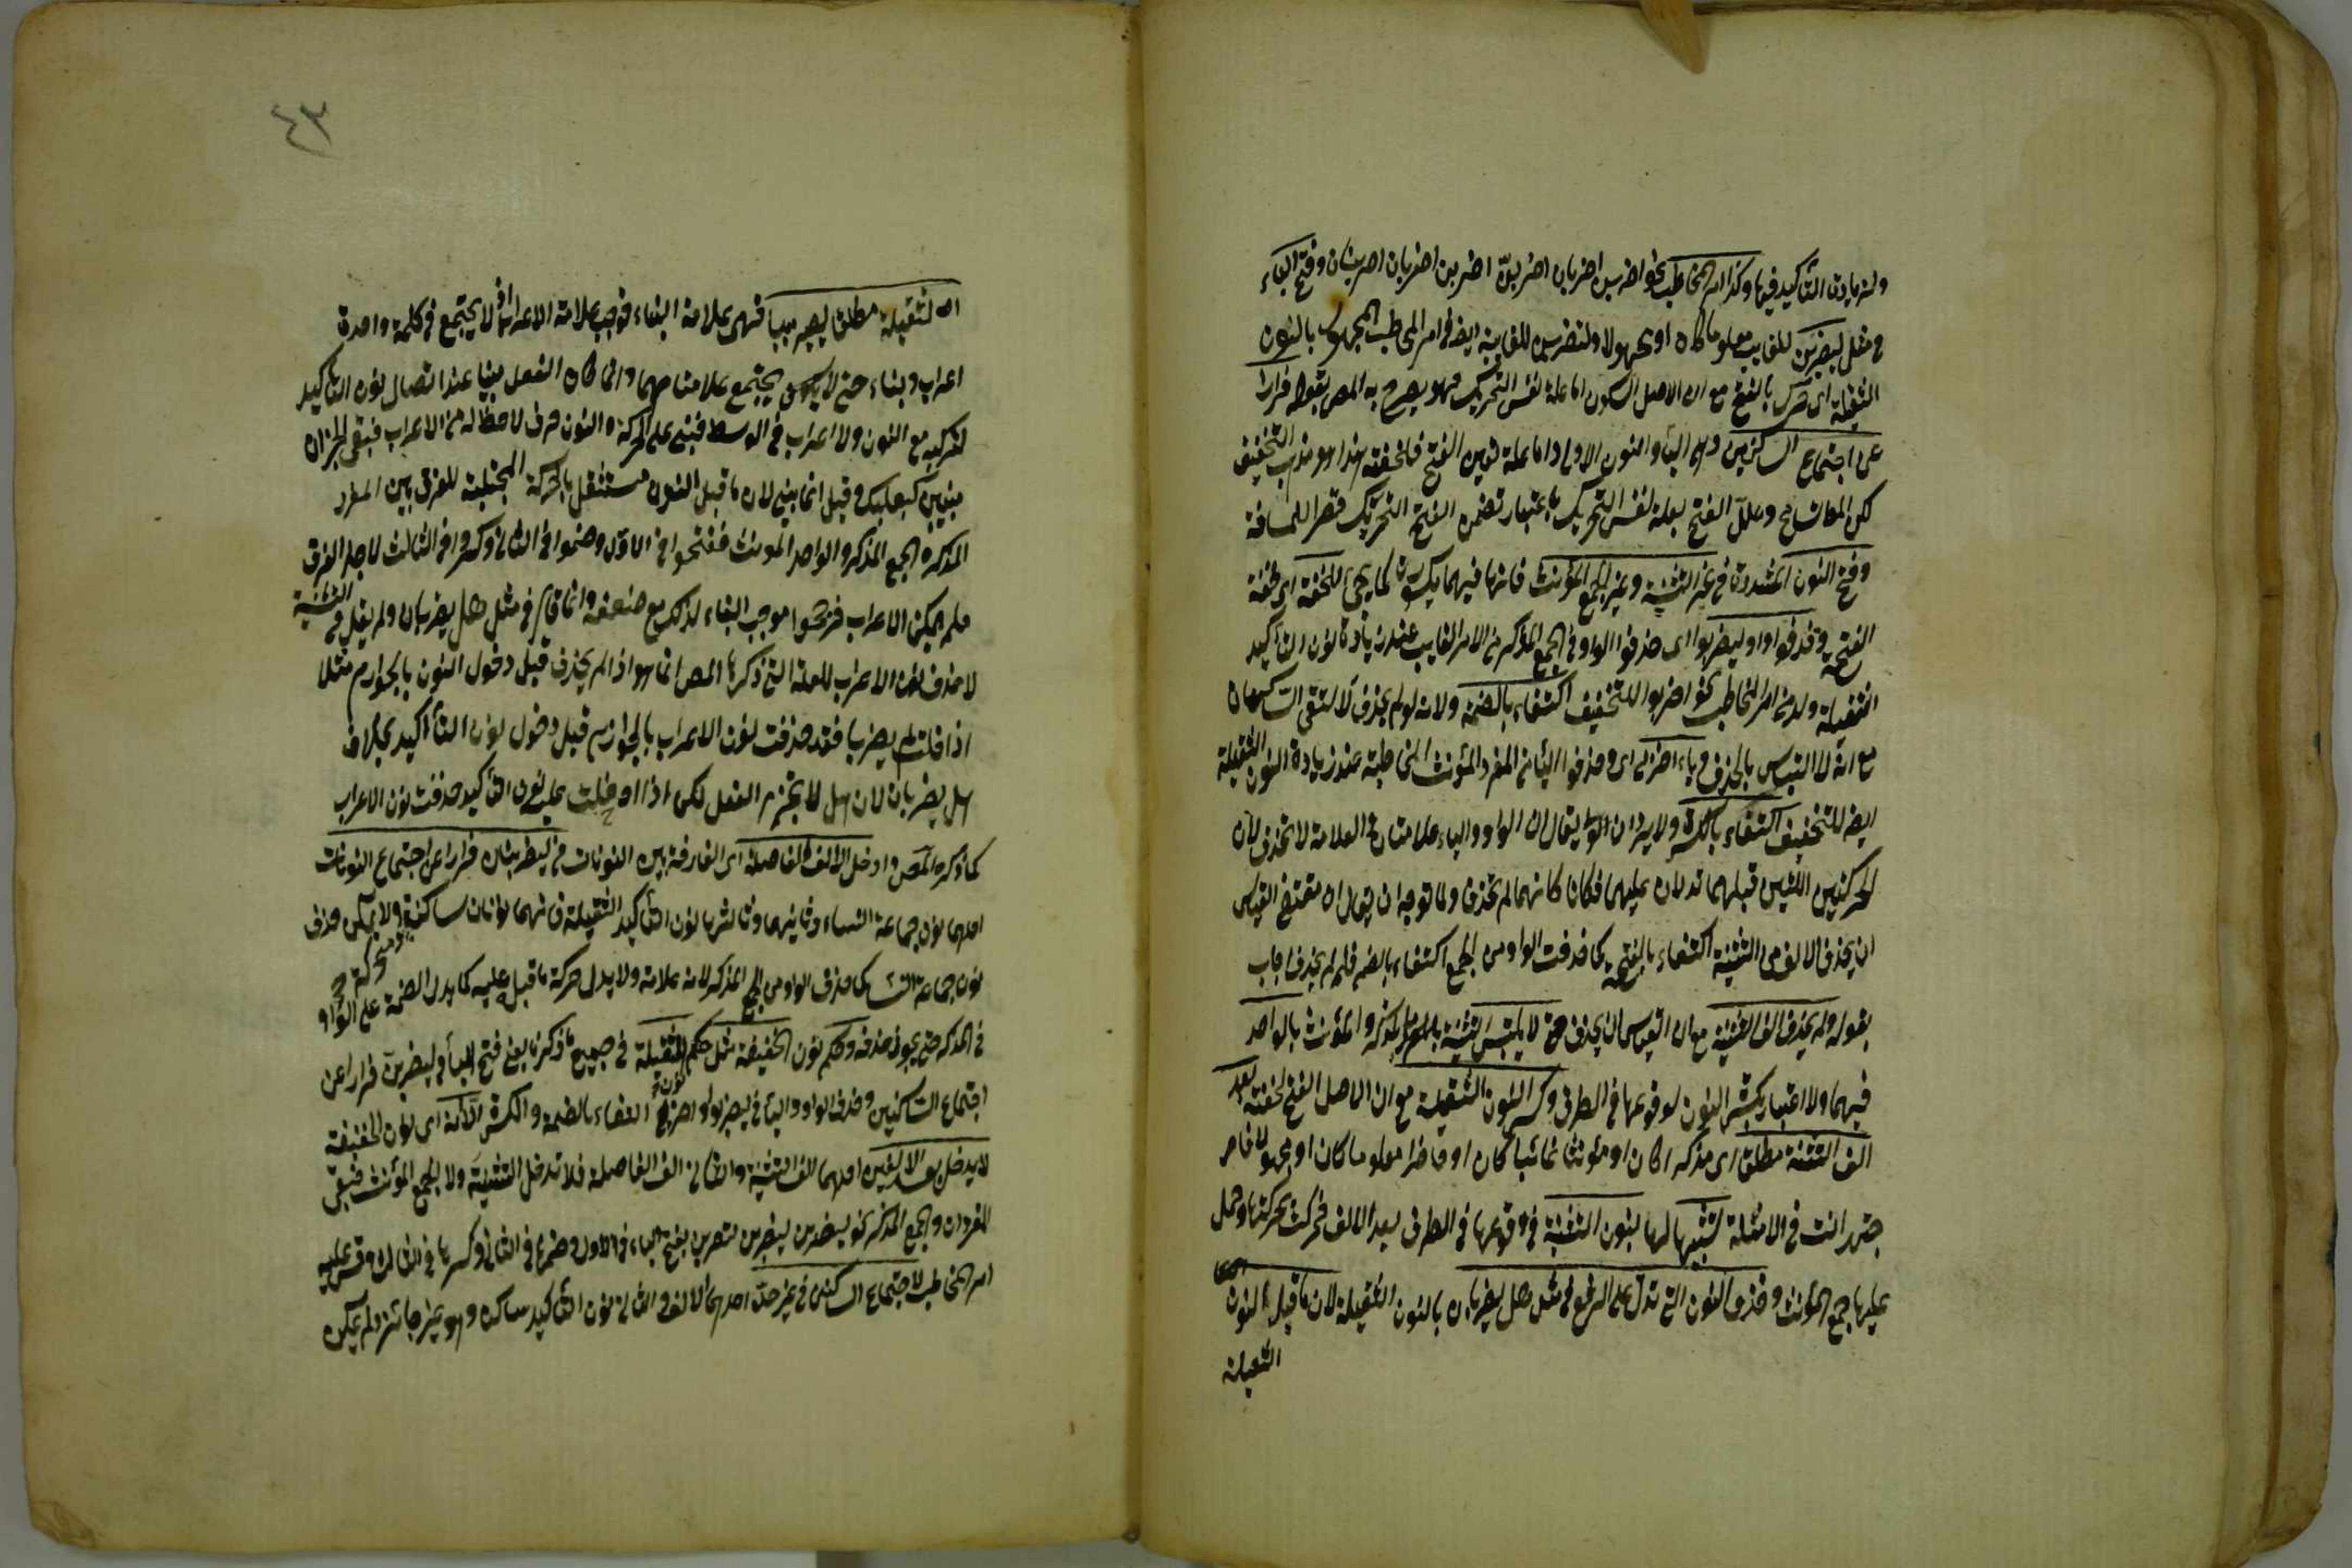 ولزيادة التأكيد فيها وكذا امر المخاطب نحو اضربن اضربان اضربن اضربن اضربان اضربنان وفتح الباء
في مثل ليضربن للغايب معلوما كان او مجهولا ولتضربن للغايبة ايضا في امر المخاطب المجهول بالنون
الثقيلة اى حرك بالفتح مع ان الاصل السكون اما علة نفس التحريك فهو يصرح به المص بقوله فرارا
عن اجتماع الساكنين وهما الباء والنون الاولى واما علة تعيين الفتح فلخفته هذا هو التخفيف
لكن المص وعلل الفتح بعلة نفس التحريك باعتبار تضمن الفتح التحريك قصرا للمسافة
وفتح النون المشددة في غير التثنية وغير الجمع المؤنث فانها فيهما يكسر كما يجئ للخفة اى لخفة
الفتحة وحذفوا واو ليضربوا اى حذفوا الواو في الجمع المذكر من الامر الغايب عند زيادة نون التأكيد
الثقيلة ولو من امر المخاطب نحو اضربوا للتخفيف اكتفاء بالضمة ولانه لو لم يحذف لالتقى الساكنان
مع انه لا التباس بالحذف وياء اضربي اى وحذفوا الياء من المفرد المؤنث المخاطبة عند زيادة النون الثقيلة
ايضا للتخفيف اكتفاء بالكسرة ولا يرد ان يقال ان الواو والياء علامتان والعلامة لا تحذف لان
الحركتين اللتين قبلهما تدلان عليهما فكان كانهما لم تحذف ولما توجه ان يقال ان مقتضى القياس
ان يحذف الالف من التثنية اكتفاء بالفتحة كما حذفت الواو من الجمع اكتفاء بالضم فلم لم يحذف اجاب
بقوله ولم يحذف الف التثنية مع ان القياس ان يحذف حتى لا يلتبس التثنية بالمذكر والمؤنث بالواحد
فيهما ولا اعتبار بكسر النون لوقوعها في الطرف وكسر النون الثقيلة مع ان الاصل الفتح لخفته بعد
الف التثنية مطلقا اى مذكرا كان او مؤنثا غائبا كان او حاضرا معلوما كان او مجهولا
في الامثلة لشبهها بنون التثنية في وقوعها في الطرف بعد الالف فحركت بحركتها وحمل
عليها جمع المؤنث وحذف النون التي تدل على الرفع في مثل هل يضربان بالنون الثقيلة لان ما قبل النون
الثقيلة
الثقيلة مطلقا يصير مبنيا فهى علامة البناء فوجب علامة الاعراب لا يجتمع في كلمة واحدة
اعراب وبناء حتى يجتمع علامتاهما وانما كان الفعل مبنيا عند اتصال نون التأكيد
لتركبه مع النون ولا اعراب في الوسط فبنى على الحركة والنون حرف لا حظ له من الاعراب فبقى الجزان
مبنيين كبعلبك وقيل انما بنى لان ما قبل النون مستثقل بالحركة المجتلبة للفرق بين المفرد
المذكر والجمع المذكر والواحد المؤنث ففتحوا في الاول وضموا في الثاني وكسروا في الثالث لاجل الفرق
فلم يمكن الاعراب فرجحوا موجب البناء لذلك مع ضعفه وانما قال في مثل هل يضربان ولم يقل في التثنية
لا حذف نون الاعراب للعلة التي ذكرها المص انما هو اذا لم يحذف قبل دخول النون بالجوازم مثلا
اذا قلت لم يضربا فقد حذفت نون الاعراب بالجوازم قبل دخول نون التأكيد بخلاف
هل يضربان لان هل لا تجزم الفعل لكن اذا دخلت عليه نون التأكيد حذفت نون الاعراب
كما ذكره المص وادخل الالف الفاصلة اى الفارقة بين النونات في ليضربنان فرارا عن اجتماع النونات
احدها نون جماعة النساء وثانيها وثالثها نون التأكيد الثقيلة فانهما نونان ساكنة ومتحركة ولا يمكن حذف
نون جماعة النساء كما حذف الواو من الجمع المذكر لانه علامة ولا يدل حركة ما قبله عليه كما يدل الضمة على الواو
في المذكر حتى يجوز حذفه وحكم نون الخفيفة مثل حكم الثقيلة في جميع ما ذكرنا يعنى فتح الباء في ليضربن فرارا عن
اجتماع الساكنين وحذف الواو والياء في ليضربوا واضربي اكتفاء بالضمة والكسرة الا انه اى نون الخفيفة
لا يدخل بعد الالفين احدهما الف التثنية والثاني الف الفاصلة فلا تدخل التثنية ولا الجمع المؤنث فبقى
المفردان وجمع المذكر نحو ليضربن ليضربن لتضربن بفتح الباء في الاول وضمها في الثاني وكسرها في الثالث وقس عليه
امر المخاطب لاجتماع الساكنين في غير حده احدهما الالف والثاني نون التأكيد ساكنة وهو غير جائز ولم يمكن
٤٣